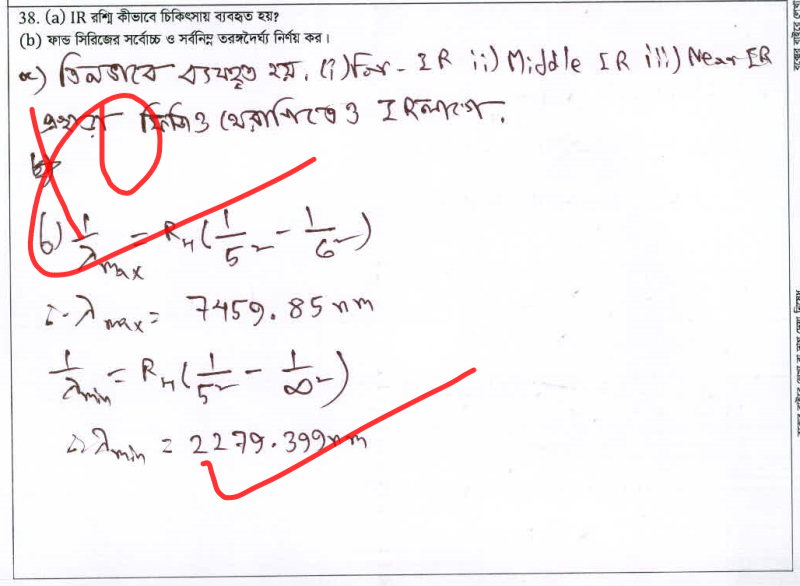 38. (a) IR রশ্মি কীভাবে চিকিৎসায় ব্যবহৃত হয়?
(b) ফান্ড সিরিজের সর্বোচ্চ ও সর্বনিম্ন তরঙ্গদৈর্ঘ্য নির্ণয় কর।
a) তিনভাবে ব্যবহৃত হয়. (i) Far - IR ii) Middle IR iii) Near IR
এছাড়া ফিজিও থেরাপিতেও IR লাগে.
0
b) 1/λmax = RH (1/5² - 1/6²)
∴ λmax = 7459.85 nm
1/λmin = RH (1/5² - 1/∞²)
∴ λmin = 2279.399 nm